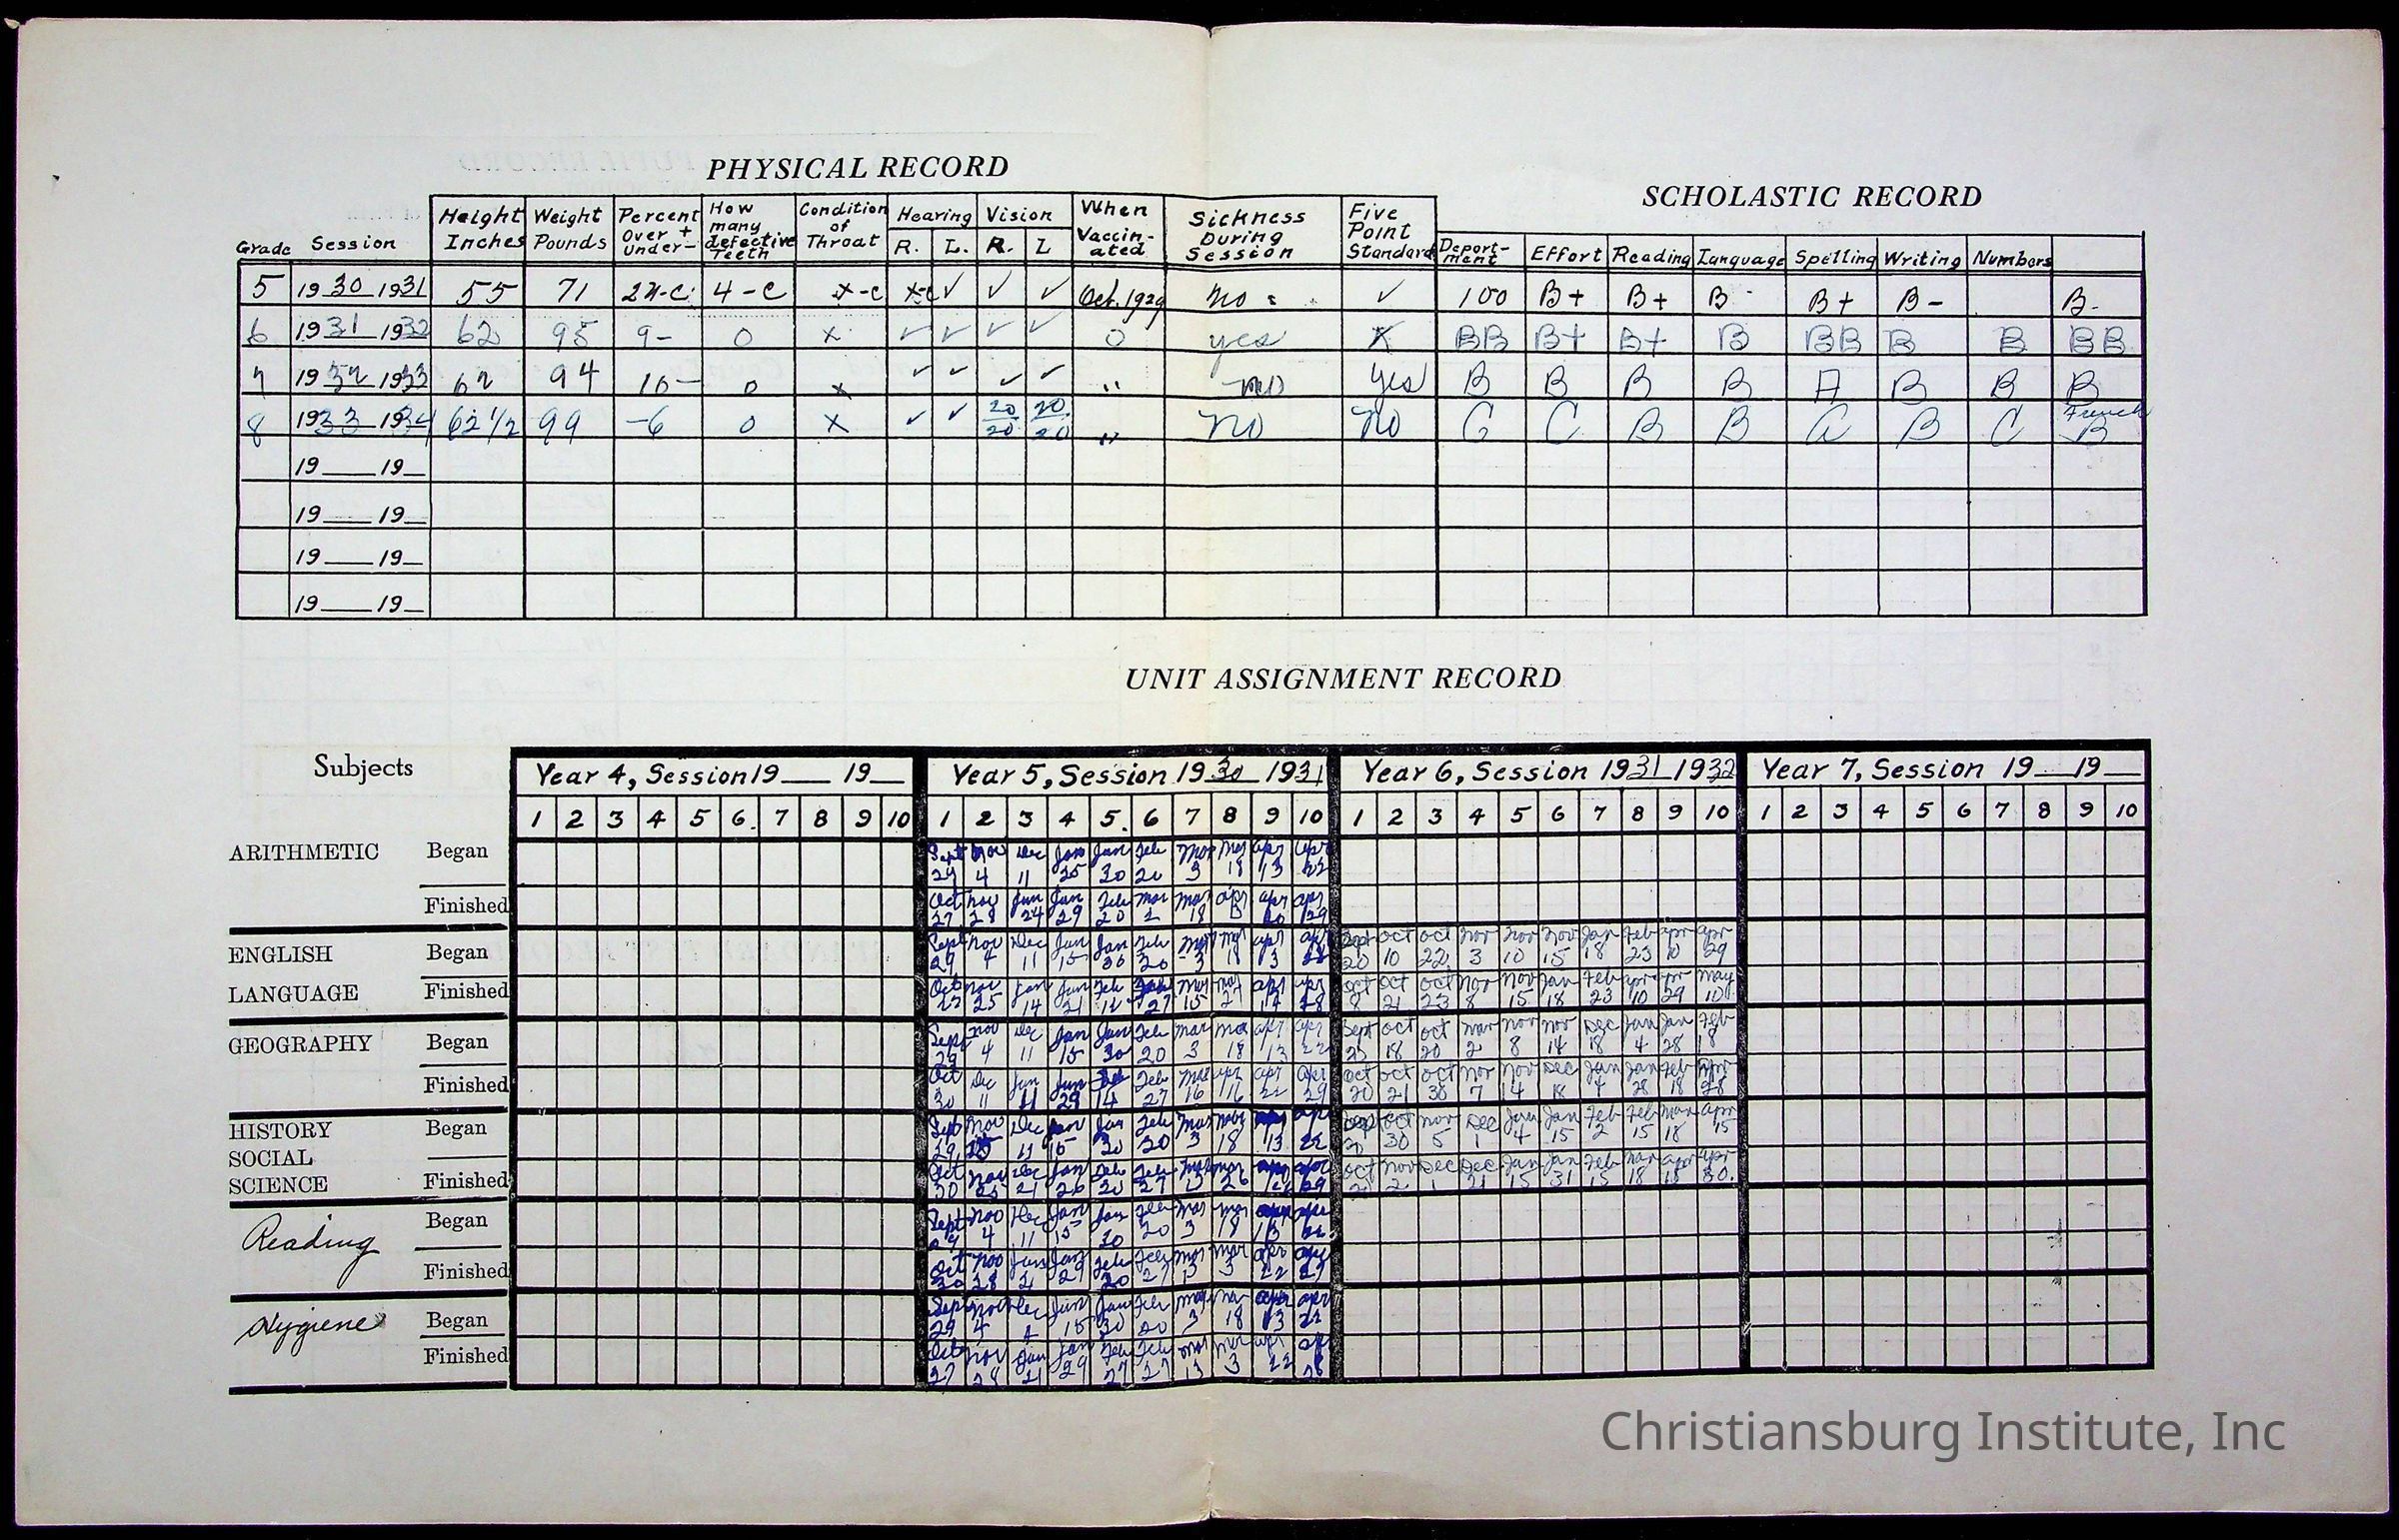 PHYSICAL RECORD
SCHOLASTIC RECORD
Grade Session Height Inches Weight Pounds Percent Over + Under- How many defective Teeth Condition of Throat Hearing R. L. Vision R. L When Vaccin-ated Sickness During Session Five Point Standard Deport-ment Effort Reading Language Spelling Writing Numbers
5 1930 1931 55 71 4-C x-c ✓ ✓ ✓ Oct. 1929 no ✓ 100 B+ B+ B B+ B- B-
6 1931 1932 62 95 9- 0 x ✓ ✓ ✓ ✓ 0 yes X BB B+ B+ B BB B B BB
7 1932 1933 62 94 10- 0 x ✓ ✓ ✓ ✓ " no yes B B B B A B B B
8 1933 1934 62 1/2 99 -6 0 X ✓ ✓ 20/20 20/20 " no no C C B B a B C French B
19 19
19 19
19 19
19 19
UNIT ASSIGNMENT RECORD
Subjects
Year 4, Session 19 19 Year 5, Session 1930 1931 Year 6, Session 1931 1932 Year 7, Session 19 19
1 2 3 4 5 6. 7 8 9 10 1 2 3 4 5. 6 7 8 9 10 1 2 3 4 5 6 7 8 9 10 1 2 3 4 5 6 7 8 9 10
ARITHMETIC Began Sept Nov Dec Jan Jan Feb Mar Mar apr apr
29 4 11 25 30 20 3 18 13 22
Finished Oct Nov Jan Jan Feb Mar Mar apr apr apr
27 28 24 29 20 2 18 20 29
ENGLISH Began Sept Nov Dec Jan Jan Feb Mar Mar apr apr Sept oct oct Nov Nov Nov Jan Feb apr apr
29 4 11 15 30 20 3 18 13 22 20 10 22 3 10 15 18 23 10 29
LANGUAGE Finished Oct Nov Jan Jan Feb Mar Mar apr apr oct oct oct Nov Nov Jan Feb apr apr May
22 25 14 21 27 15 14 28 8 21 23 8 15 18 23 10 29 10
GEOGRAPHY Began Sept Nov Dec Jan Jan Feb Mar Mar apr apr Sept oct oct Nov Nov Dec Jan Jan Feb
29 4 11 15 30 20 3 18 13 22 23 18 20 2 8 14 18 4 28 18
Finished Oct Dec Jan Jan Feb Mar apr apr apr oct oct oct Nov Nov Dec Jan Jan Feb apr
30 11 29 14 27 16 16 22 29 20 21 30 7 14 18 4 28 18 28
HISTORY Began Sept Nov Dec Jan Jan Feb Mar Mar apr apr Sept oct Nov Dec Jan Jan Feb Feb Mar apr
29 11 15 30 20 3 18 13 22 30 5 1 4 15 2 15 18 15
SOCIAL
SCIENCE Finished Oct Nov Dec Jan Feb Feb Mar Mar apr apr oct Nov Dec Dec Jan Jan Feb Mar apr apr
30 25 21 26 20 27 26 29 2 1 21 15 31 15 18 18 30.
Reading Began Sept Nov Dec Jan Jan Feb Mar Mar apr apr
4 11 15 30 20 3 18 13
Finished Oct Nov Jan Jan Feb Feb Mar Mar apr apr
30 28 21 29 20 27 13 3 22 27
Hygiene Began Sept Nov Dec Jan Jan Feb Mar Mar apr apr
29 4 15 30 20 3 18 13 22
Finished Oct Nov Jan Jan Feb Feb Mar Mar apr
27 28 21 29 27 27 13 3 22 28
Christiansburg Institute, Inc